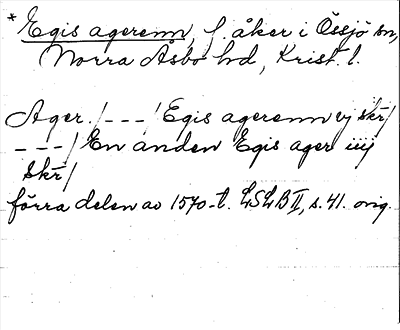 * Egis agerenn, f. åker i Össjö sn,
Norra Åsbo hd, Krist. l.
Ager. /---/ Egis agerenn vj skr/
---/ En anden Egis ager iiij
skr/
förra delen av 1570-t. LSLB II, s. 41. orig.